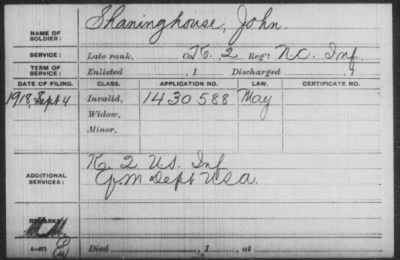 NAME OF SOLDIER: Shaninghouse, John.
SERVICE: Late rank, Co. K, 2 Reg't N.C. Inf.
TERM OF SERVICE: Enlisted , 1 Discharged , 1
DATE OF FILING. CLASS. APPLICATION NO. LAW. CERTIFICATE NO.
1918, Sept 4 Invalid, 1430588 May
Widow,
Minor,
ADDITIONAL SERVICES: K. 2 U.S. Inf
Q.M. Dept USA.
REMARKS:
Died , 1 , at